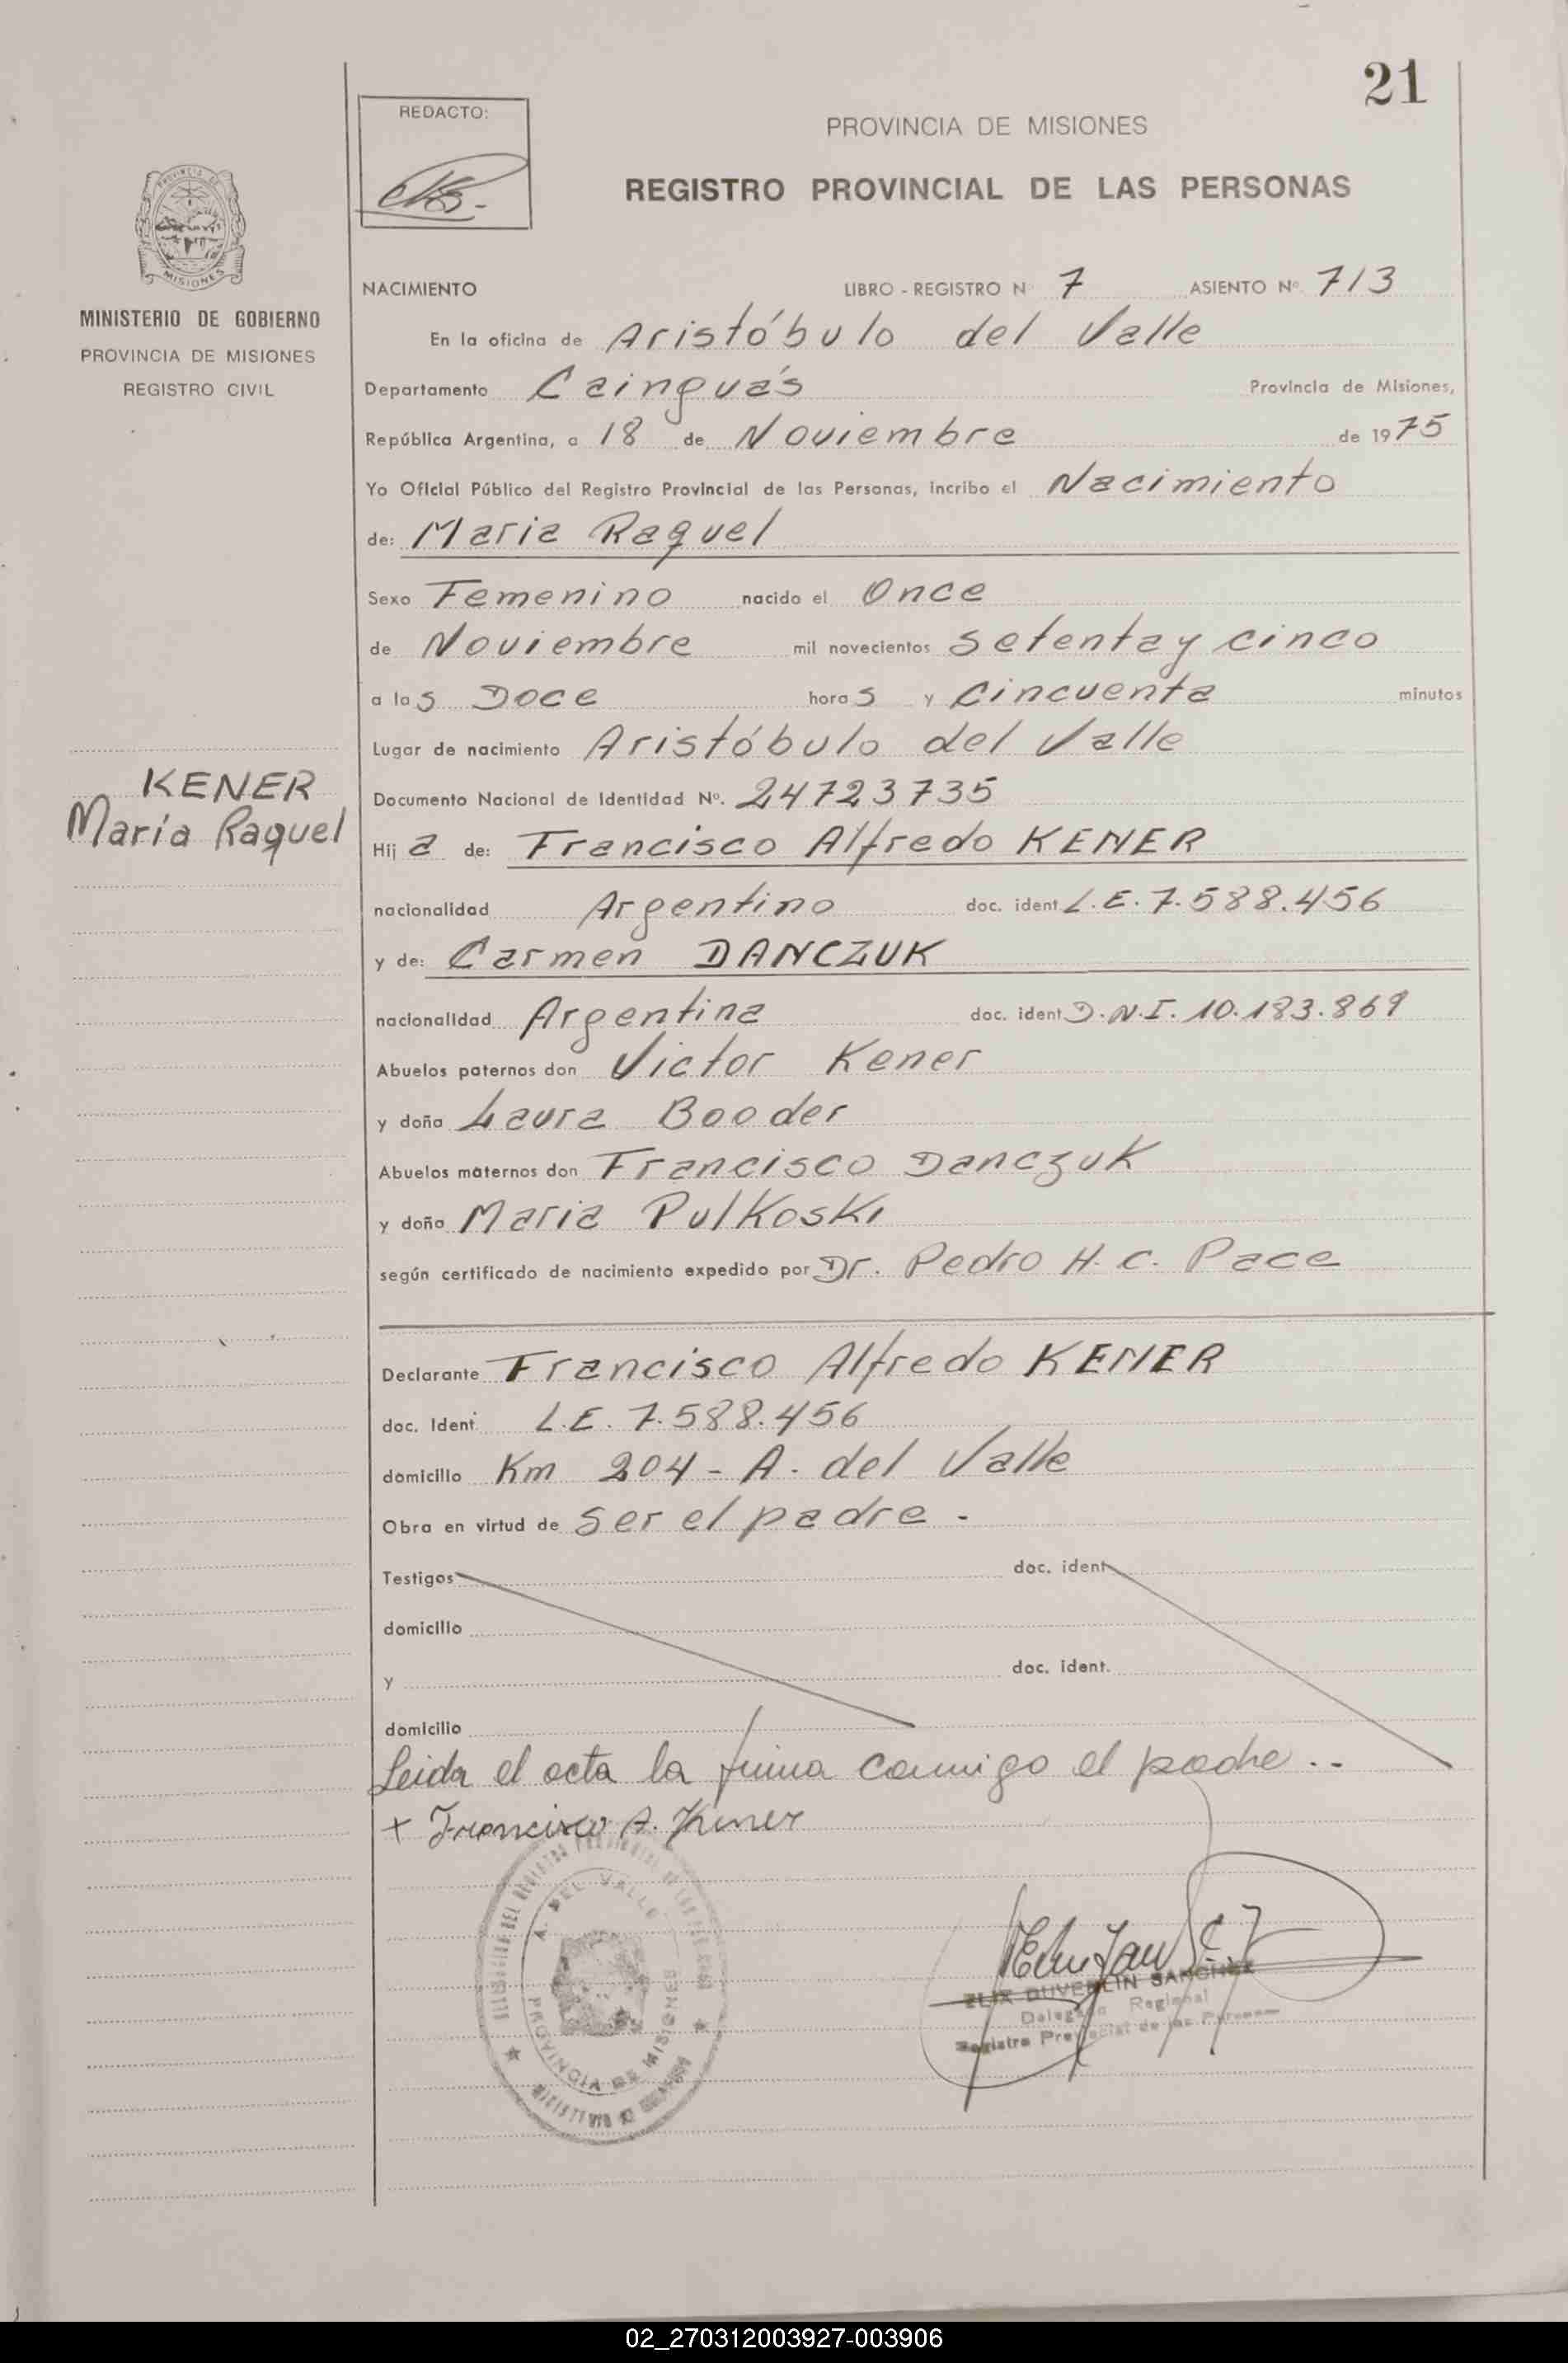 21
REDACTO:
PROVINCIA DE MISIONES
REGISTRO PROVINCIAL DE LAS PERSONAS
MISIONES
MINISTERIO DE GOBIERNO
PROVINCIA DE MISIONES
REGISTRO CIVIL
NACIMIENTO LIBRO - REGISTRO N 7 ASIENTO Nº 713
En la oficina de Aristóbulo del Valle
Departamento Cainguás Provincia de Misiones,
República Argentina, a 18 de Noviembre de 1975
Yo Oficial Público del Registro Provincial de las Personas, incribo el Nacimiento
de: Maria Raquel
Sexo Femenino nacido el Once
de Noviembre mil novecientos setenta y cinco
a las Doce horas y cincuenta minutos
Lugar de nacimiento Aristóbulo del Valle
KENER
María Raquel
Documento Nacional de Identidad Nº. 24723735
Hija de: Francisco Alfredo KENER
nacionalidad Argentino doc. ident L.E. 7.588.456
y de: Carmen DANCZUK
nacionalidad Argentina doc. ident D.N.I. 10.183.869
Abuelos paternos don Victor Kener
y doña Laura Booder
Abuelos maternos don Francisco Danczuk
y doña Maria Pulkoski
según certificado de nacimiento expedido por Dr. Pedro H. C. Pace
Declarante Francisco Alfredo KENER
doc. Ident L.E. 7.588.456
domicilio Km 204 - A. del Valle
Obra en virtud de ser el padre -
Testigos doc. ident
domicilio
y doc. ident.
domicilio
Leida el acta la firma conmigo el padre..
+ Francisco A. Kener
A. DEL VALLE
PROVINCIA DE MISIONES
DUVERLIN SANCHEZ
Delegado Regional
Registro Provincial de las Personas
02_270312003927-003906